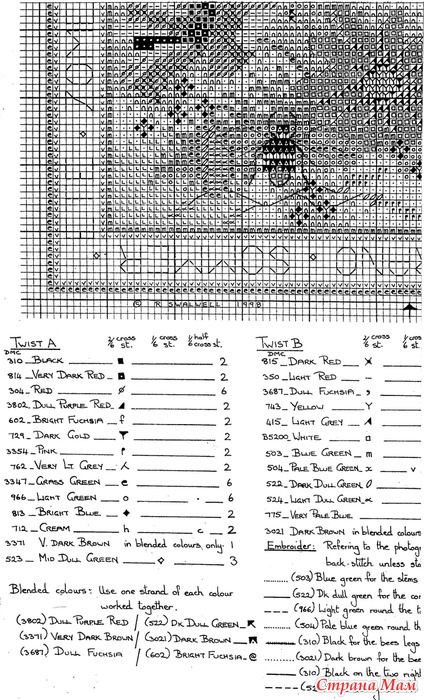 © R SWALWELL 1998
TWIST A 2/6 cross st. 1/6 cross st. 1/6 half cross st.
DMC
310 BLACK 2
814 VERY DARK RED 2
304 RED 6
3802 DULL PURPLE RED 2
602 BRIGHT FUCHSIA f 2
729 DARK GOLD 2
3354 PINK 2
762 VERY LT GREY 2
3347 GRASS GREEN e 6
966 LIGHT GREEN o . 6
813 BRIGHT BLUE ◆ 2
712 CREAM h c 2
3371 V. DARK BROWN in blended colours only 1
523 MID DULL GREEN ◇ 3
Blended colours: Use one strand of each colour
worked together.
(3802) DULL PURPLE RED / (522) DK DULL GREEN
(3371) VERY DARK BROWN / (3021) DARK BROWN
(3687) DULL FUCHSIA / (602) BRIGHT FUCHSIA @
TWIST B 2/6 cross st. 1/6 cros st.
DMC
815 DARK RED
350 LIGHT RED –
3687 DULL FUCHSIA ,
743 YELLOW Y
415 LIGHT GREY
B5200 WHITE
503 BLUE GREEN m
504 PALE BLUE GREEN x v
522 DARK DULL GREEN 0
524 LIGHT DULL GREEN ∝
775 VERY PALE BLUE
3021 DARK BROWN in blended colours
Embroider: Refering to the photog
back-stitch unless sta
(503) Blue green for the stems
(522) Dk dull green for the cor
(966) Light green round the t
(504) Pale blue green round th
(310) Black for the bees legs
(3021) Dark brown for the bee
(310) Black on the two right
Страна Мам